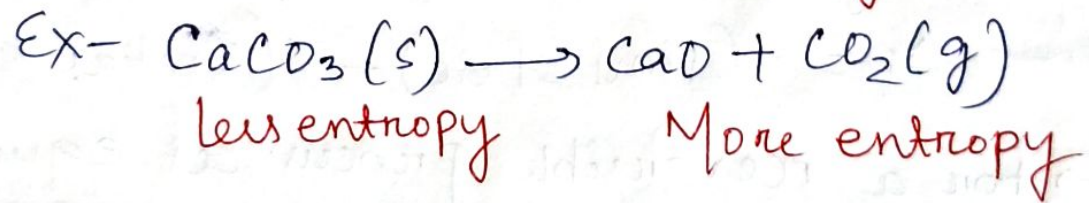 Ex- CaCO₃(s) ⟶ CaO + CO₂(g)
less entropy More entropy